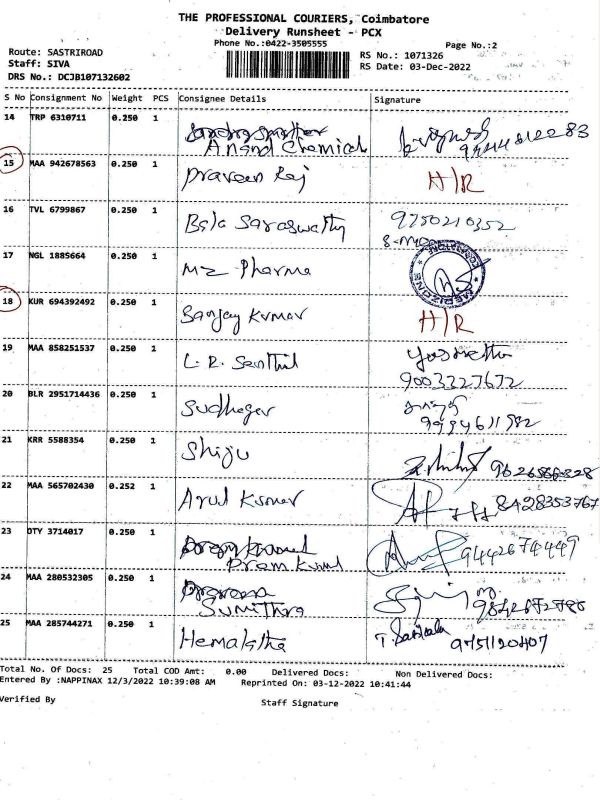 THE PROFESSIONAL COURIERS, Coimbatore
Delivery Runsheet - PCX
Phone No.:0422-3505555
Page No.:2
Route: SASTRIROAD
Staff: SIVA
DRS No.: DCJB107132602
RS No.: 1071326
RS Date: 03-Dec-2022
S No Consignment No Weight PCS Consignee Details Signature
14 TRP 6310711 0.250 1
Anand Chemical
15 MAA 942678563 0.250 1 Praveen Raj H/R
16 TVL 6799867 0.250 1 Bala Saraswathy 9750210352
17 NGL 1885664 0.250 1 MZ Pharma MEDIZONE
18 KUR 694392492 0.250 1 Sanjay Kumar H/R
19 MAA 858251537 0.250 1 L.R. Senthil
9003327672
20 BLR 2951714436 0.250 1 Sudhagar
9994611982
21 KRR 5588354 0.250 1 Shiju
22 MAA 565702430 0.252 1 Arul Kumar 8428353767
23 OTY 3714017 0.250 1 Prem Kumar 9442674449
24 MAA 280532305 0.250 1
Sumithra
25 MAA 285744271 0.250 1 Hemalatha 9751120407
Total No. Of Docs: 25 Total COD Amt: 0.00 Delivered Docs: Non Delivered Docs:
Entered By :NAPPINAX 12/3/2022 10:39:08 AM Reprinted On: 03-12-2022 10:41:44
Verified By Staff Signature